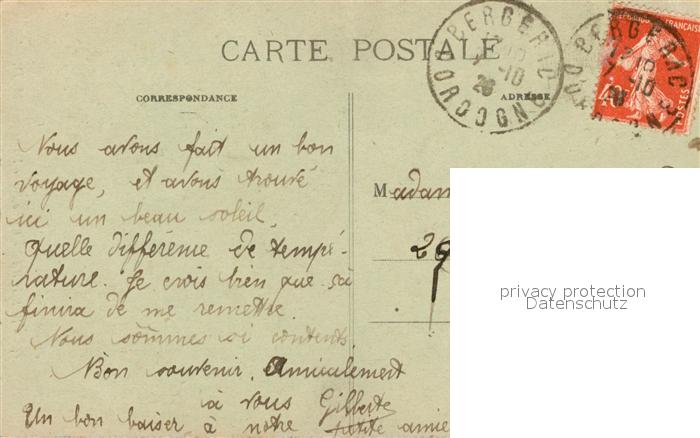 CARTE POSTALE
CORRESPONDANCE
ADRESSE
BERGERAC
DORDOGNE
Nous avons fait un bon
voyage, et avons trouvé
ici un beau soleil.
Quelle différence de tempé-
rature. Je crois bien que ça
finira de me remettre.
Nous sommes si contents
Bon souvenir. Amicalement
à vous Gilberte
Un bon baiser à notre petite amie
Madam
privacy protection
Datenschutz